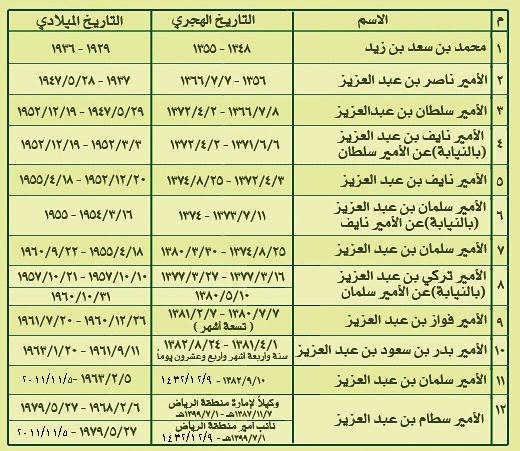 م الاسم التاريخ الهجري التاريخ الميلادي
١ محمد بن سعد بن زيد ١٣٤٨ - ١٣٥٥ ١٩٢٩ - ١٩٣٦
٢ الأمير ناصر بن عبد العزيز ١٣٥٦ - ١٣٦٦/٧/٧ ١٩٣٧ - ١٩٤٧/٥/٢٨
٣ الأمير سلطان بن عبدالعزيز ١٣٦٦/٧/٨ - ١٣٧٢/٤/٢ ١٩٤٧/٥/٢٩ - ١٩٥٢/١٢/١٩
٤ الأمير نايف بن عبد العزيز
(بالنيابة)عن الأمير سلطان ١٣٧١/٦/٦ - ١٣٧٢/٤/٢ ١٩٥٢/٣/٣ - ١٩٥٢/١٢/١٩
٥ الأمير نايف بن عبد العزيز ١٣٧٢/٤/٣ - ١٣٧٤/٨/٢٥ ١٩٥٢/١٢/٢٠ - ١٩٥٥/٤/١٨
٦ الأمير سلمان بن عبد العزيز
(بالنيابة)عن الأمير نايف ١٣٧٣/٧/١١ - ١٣٧٤ ١٩٥٤/٣/١٦ - ١٩٥٥
٧ الأمير سلمان بن عبد العزيز ١٣٧٤/٨/٢٥ - ١٣٨٠/٣/٣٠ ١٩٥٥/٤/١٨ - ١٩٦٠/٩/٢٢
٨ الأمير تركي بن عبد العزيز
(بالنيابة)عن الأمير سلمان ١٣٧٧/٣/١٦ - ١٣٧٧/٣/٢٧ ١٩٥٧/١٠/١٠ - ١٩٥٧/١٠/٢١
١٣٨٠/٥/١٠ ١٩٦٠/١٠/٣١
٩ الأمير فواز بن عبد العزيز ١٣٨٠/٧/٧ - ١٣٨١/٢/٧ ١٩٦٠/١٢/٢٦ - ١٩٦١/٧/٢٠
( تسعة أشهر )
١٠ الأمير بدر بن سعود بن عبد العزيز ١٣٨١/٤/١ - ١٣٨٢/٨/٢٤ ١٩٦١/٩/١١ - ١٩٦٣/١/٢٠
سنة وأربعة أشهر وأربع وعشرون يوماً
١١ الأمير سلمان بن عبد العزيز ١٣٨٢/٩/١٠ - ١٤٣٢/١٢/٩ ١٩٦٣/٢/٥ - ٢٠١١/١١/٥
١٢ الأمير سطام بن عبد العزيز وكيلاً لإمارة منطقة الرياض
١٣٨٧/١١/٧ - ١٣٩٩/٧/١هـ ١٩٦٨/٢/٦ - ١٩٧٩/٥/٢٧
نائب أمير منطقة الرياض
١٣٩٩/٧/١هـ - ١٤٣٢/١٢/٩ ١٩٧٩/٥/٢٧ - ٢٠١١/١١/٥